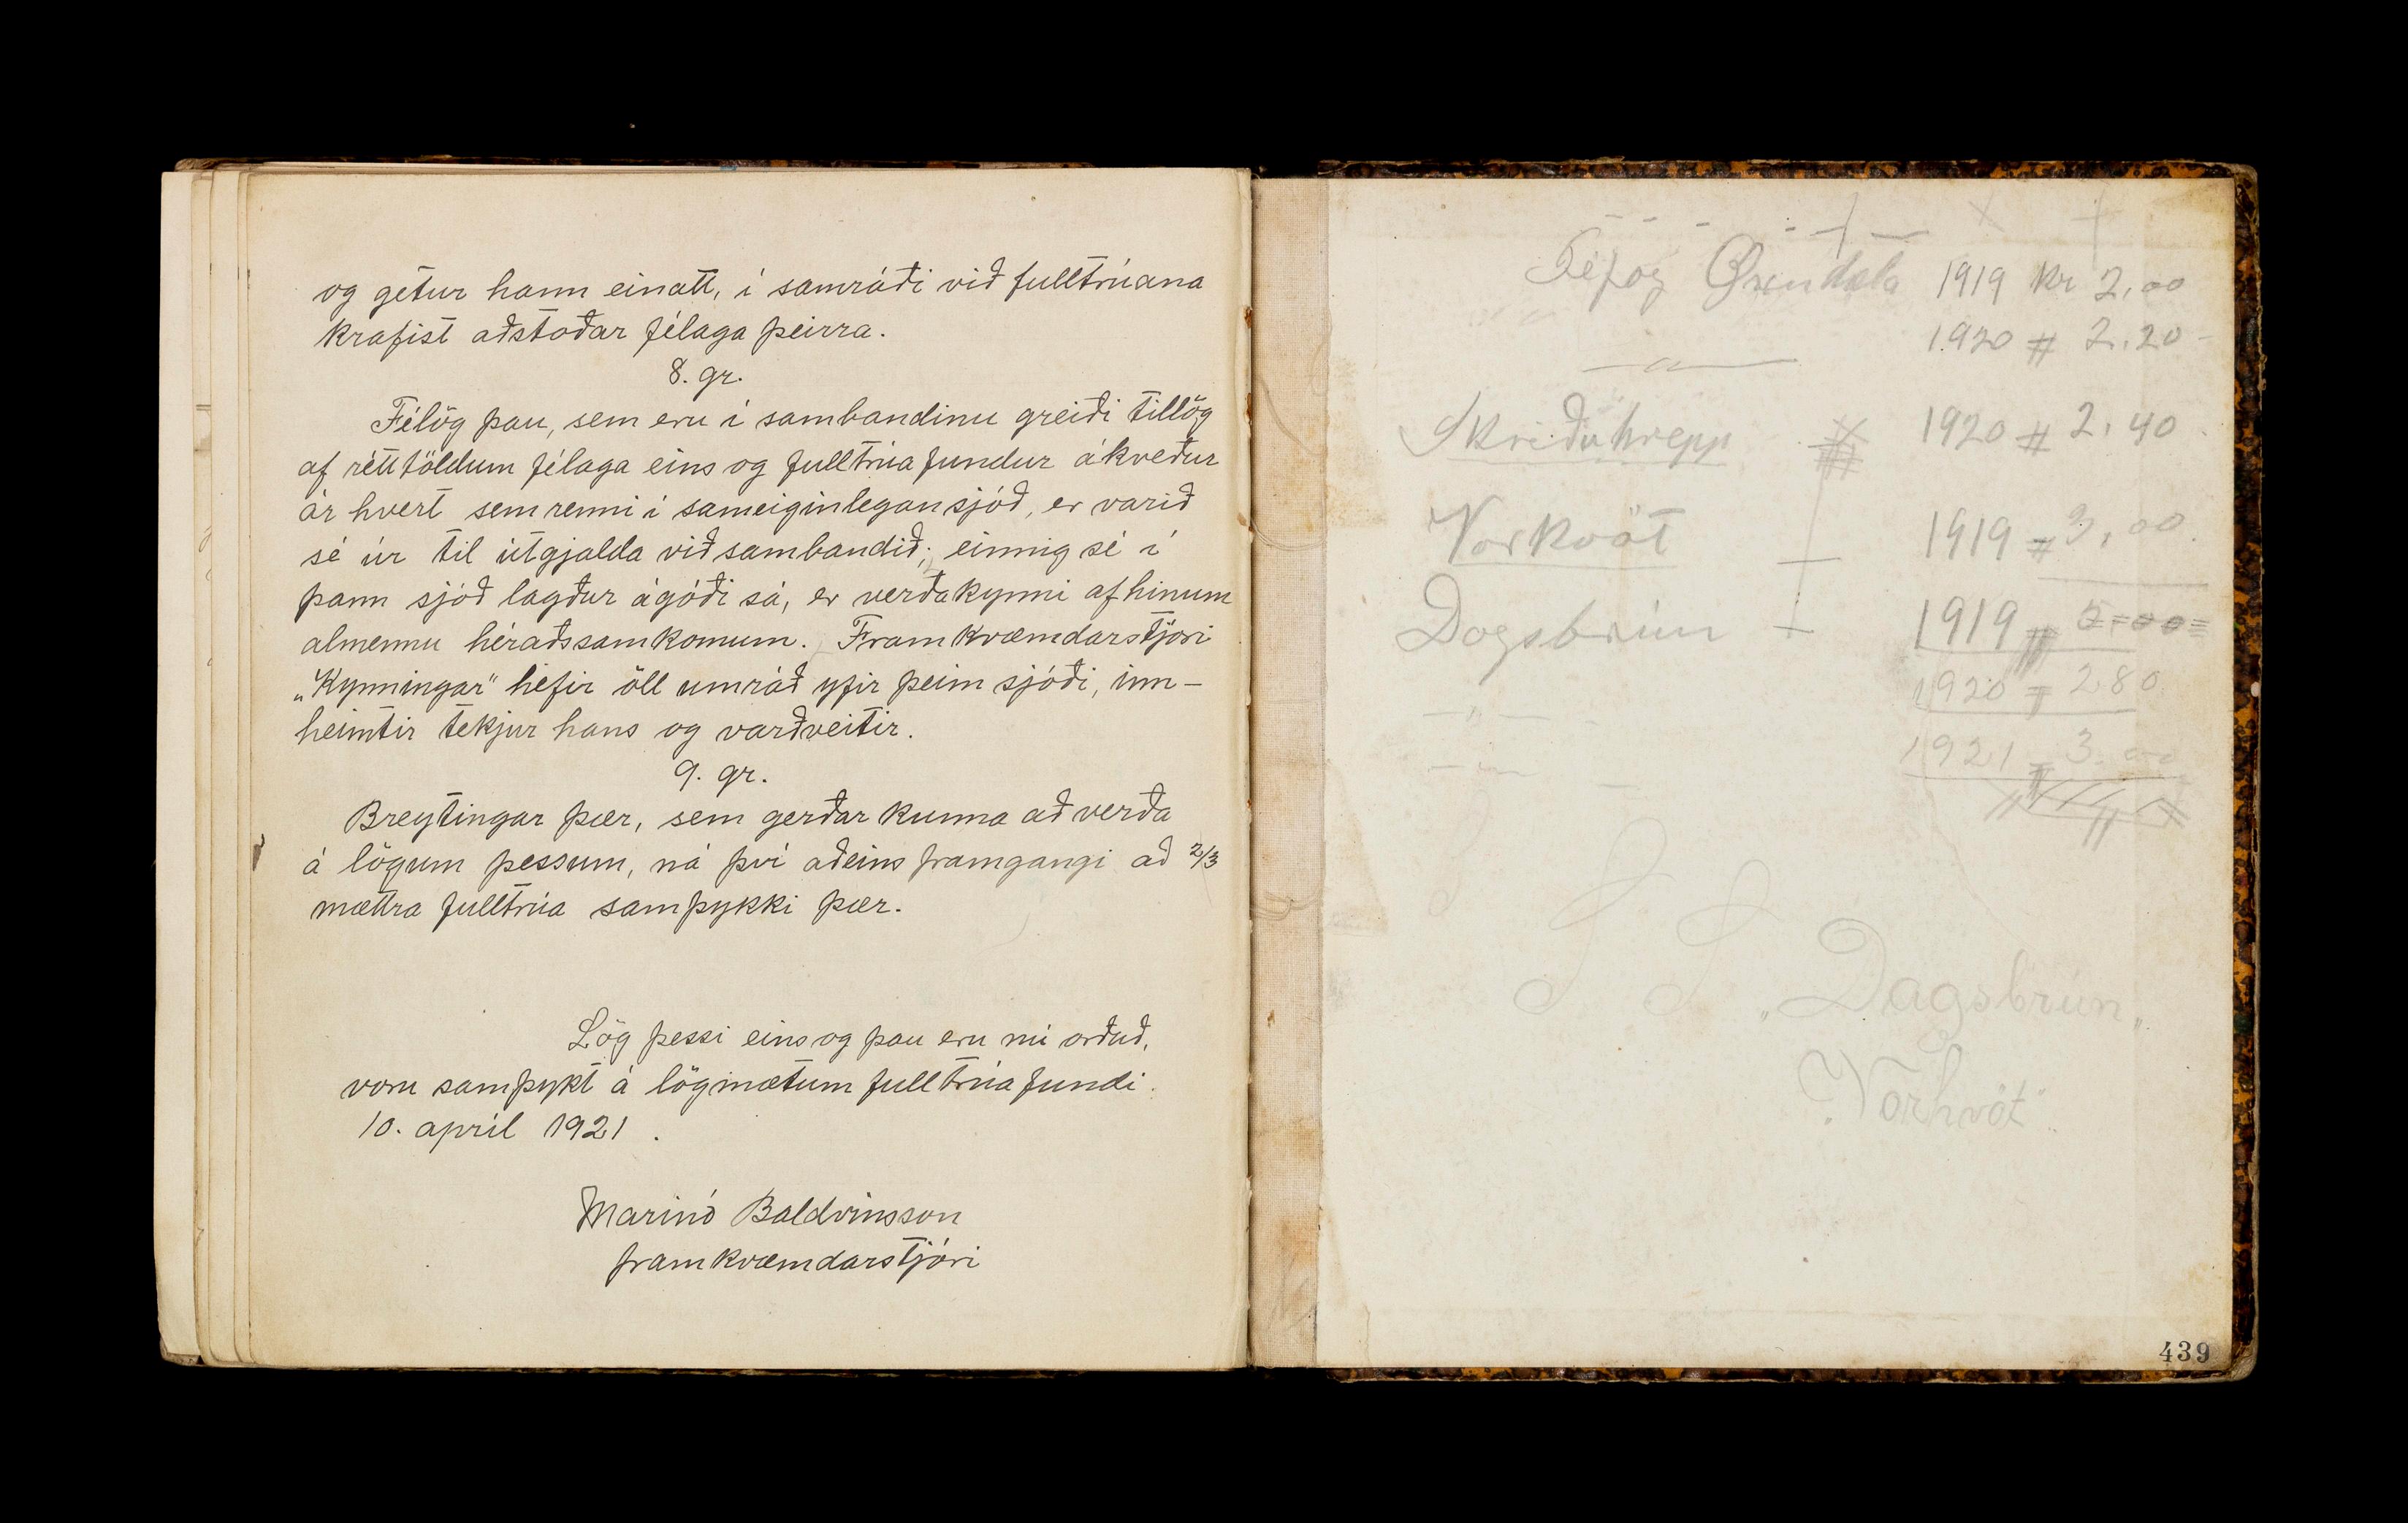 og getur hann einatt, í samráði við fulltrúana
krafist aðstoðar félaga þeirra.
8. gr.
Félög þau, sem eru í sambandinu greiði tillög
af réttföldum félaga eins og fulltrúafundur ákveður
ár hvert sem renni í sameiginlegan sjóð, er varið
sé úr til útgjalda við sambandið; einnig sé í
þann sjóð lagður ágóði sá, er verða kynni af hinum
almennu héraðssamkomum. Framkvæmdarstjóri
„Kynningar" hefir öll umráð yfir þeim sjóði, inn-
heimtir tekjur hans og varðveitir.
9. gr.
Breytingar þær, sem gerðar kunna að verða
á lögum þessum, ná því aðeins framgangi að 2/3
mættra fulltrúa samþykki þær.
Lög þessi eins og þau eru nú orðuð,
voru samþykt á lögmætum fulltrúafundi
10. apríl 1921.
Marinó Baldvinsson
framkvæmdarstjóri
1919 kr 2,00
1920 〃 2,20
Skriðuhrepp 1920 〃 2,40
Vorkvöt 1919 〃 3,00
Dagsbrún 1919 〃
1920 〃 280
1921 〃 3.00
„Dagsbrún„
„Vorhvöt"
439